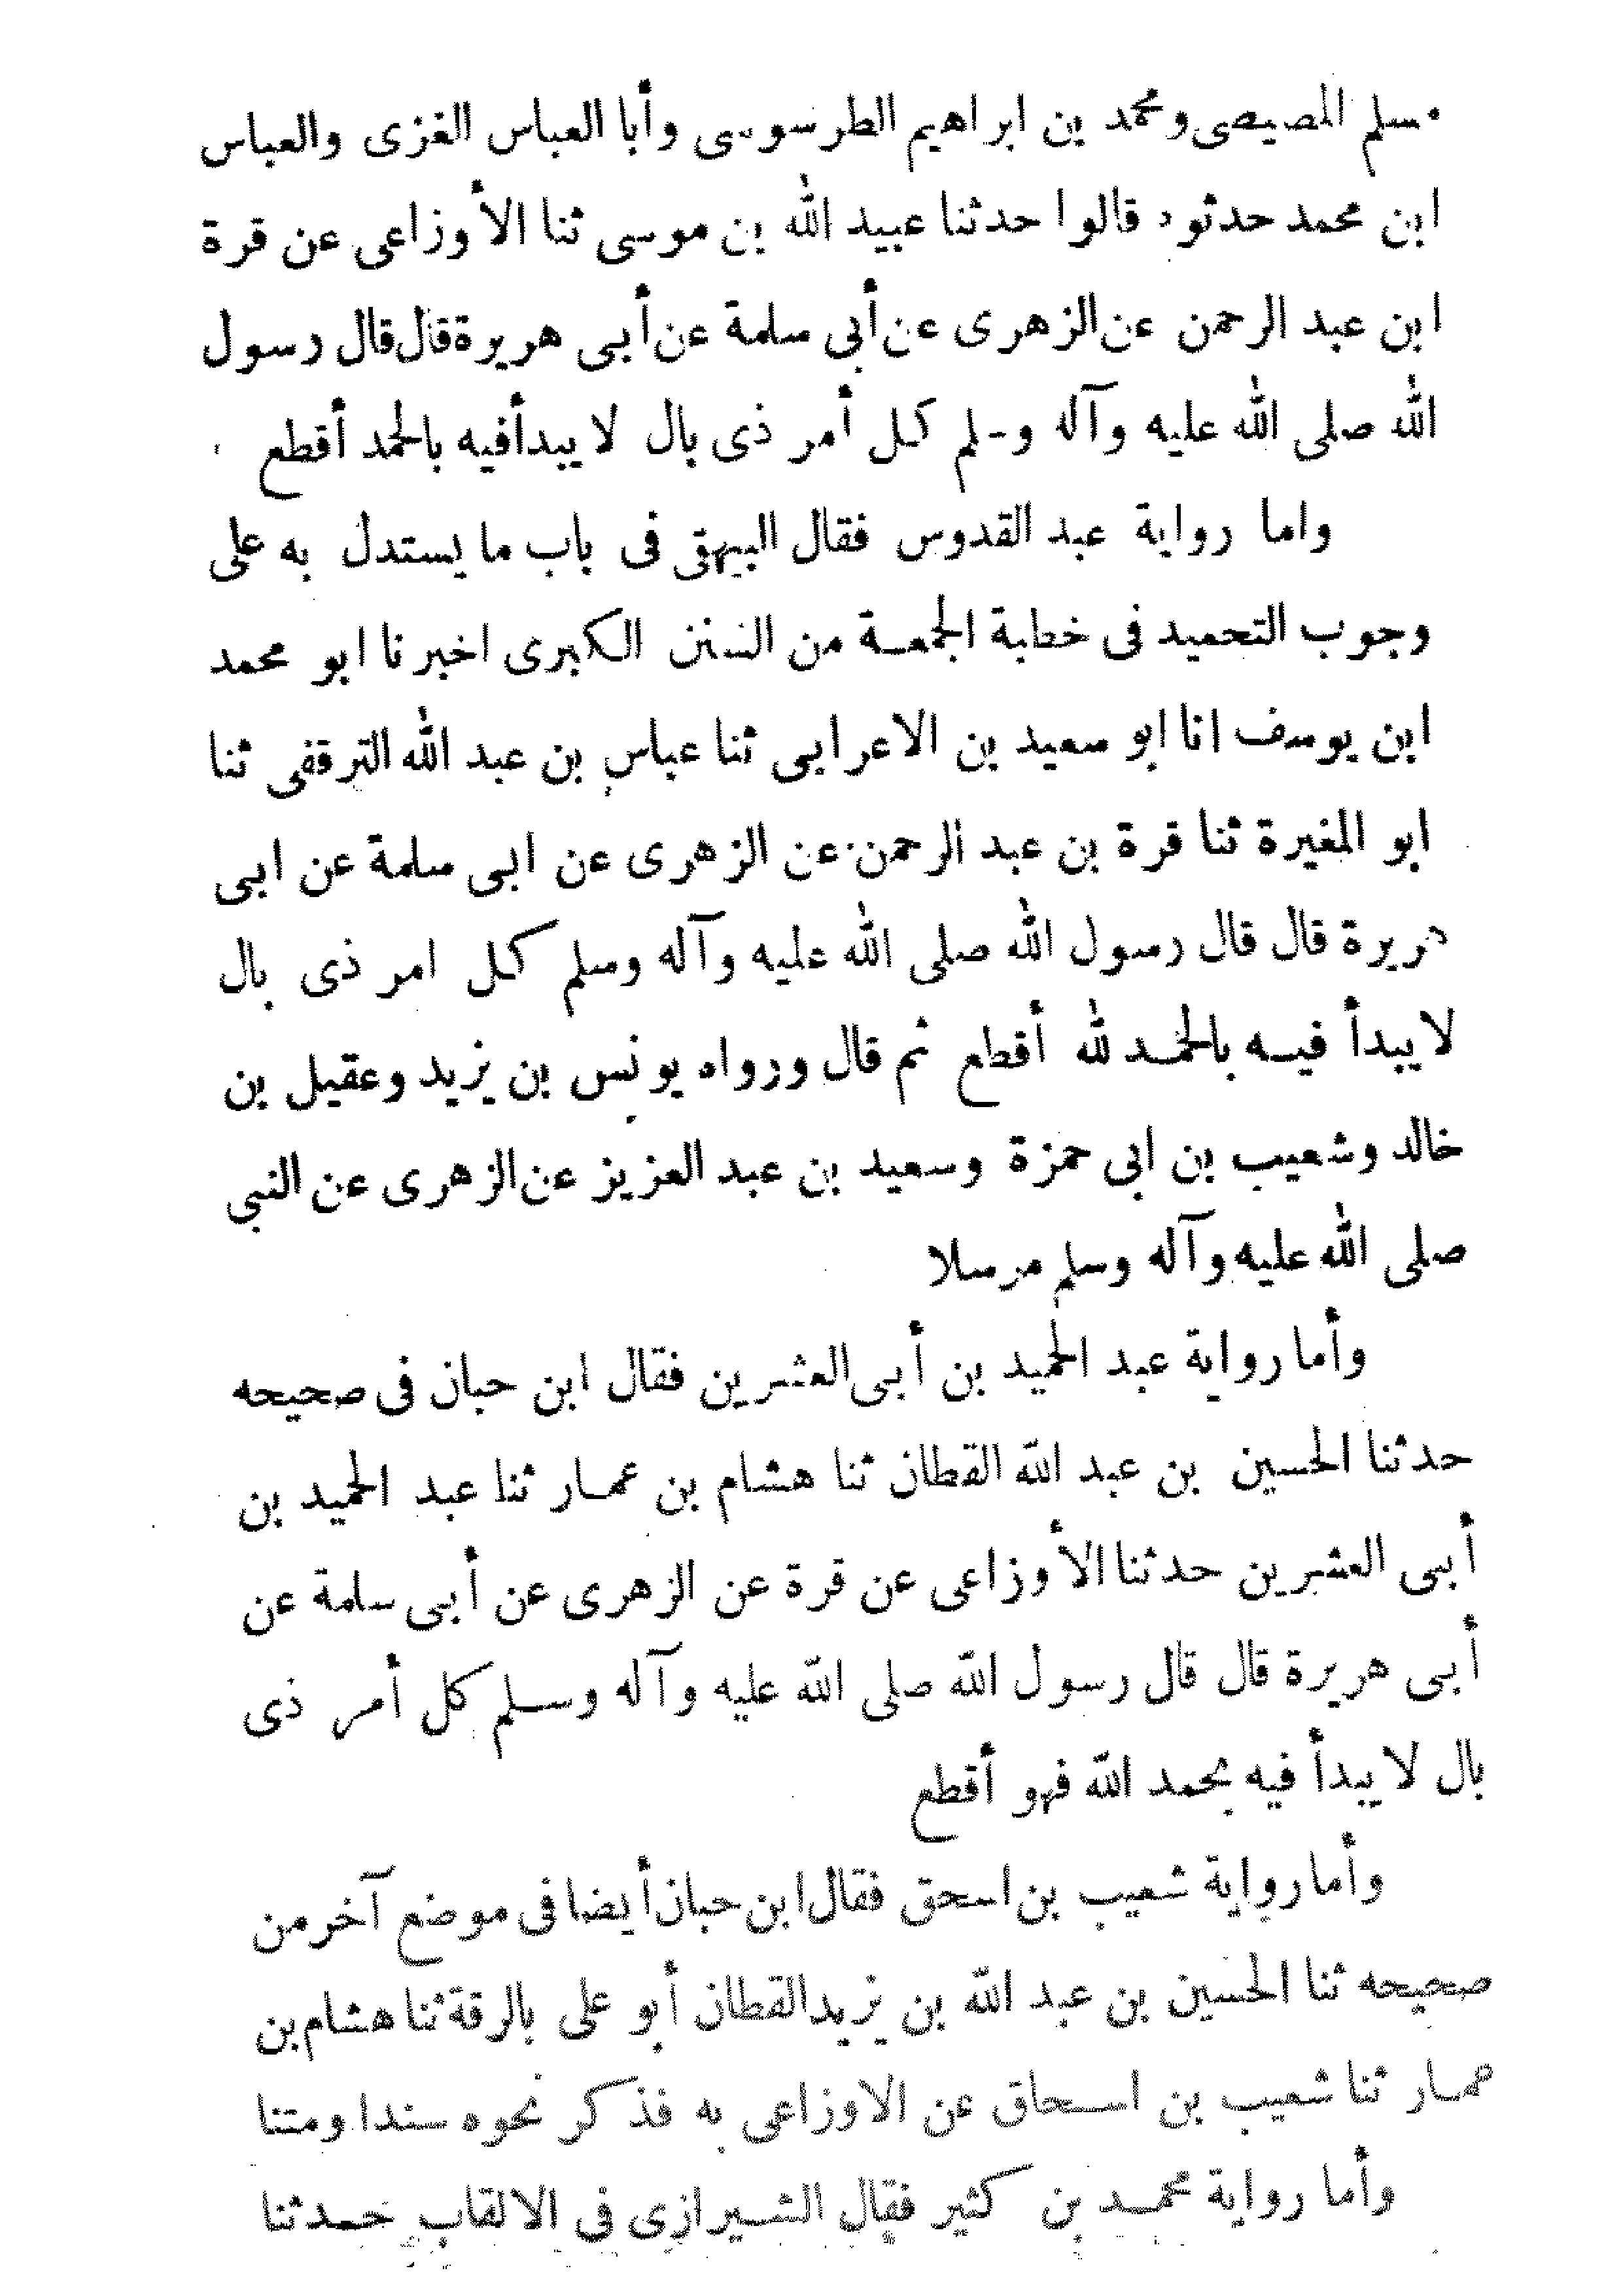 مسلم المصيصى ومحمد بن ابراهيم الطرسوسى وأبا العباس الغزى والعباس
ابن محمد حدثوه قالوا حدثنا عبيد الله بن موسى ثنا الأوزاعى عن قرة
ابن عبد الرحمن عن الزهرى عن أبى سلمة عن أبى هريرة قال قال رسول
الله صلى الله عليه وآله وسلم كل أمر ذى بال لا يبدأ فيه بالحمد أقطع
واما رواية عبد القدوس فقال البيهقى فى باب ما يستدل به على
وجوب التحميد فى خطبة الجمعة من السنن الكبرى اخبرنا ابو محمد
ابن يوسف انا ابو سعيد بن الاعرابى ثنا عباس بن عبد الله الترقفى ثنا
ابو المغيرة ثنا قرة بن عبد الرحمن عن الزهرى عن ابى سلمة عن ابى
هريرة قال قال رسول الله صلى الله عليه وآله وسلم كل امر ذى بال
لا يبدأ فيه بالحمد لله أقطع ثم قال ورواه يونس بن يزيد وعقيل بن
خالد وشعيب بن ابى حمزة وسعيد بن عبد العزيز عن الزهرى عن النبى
صلى الله عليه وآله وسلم مرسلا
وأما رواية عبد الحميد بن أبى العشرين فقال ابن حبان فى صحيحه
حدثنا الحسين بن عبد الله القطان ثنا هشام بن عمار ثنا عبد الحميد بن
أبى العشرين حدثنا الأوزاعى عن قرة عن الزهرى عن أبى سلمة عن
أبى هريرة قال قال رسول الله صلى الله عليه وآله وسلم كل أمر ذى
بال لا يبدأ فيه بحمد الله فهو أقطع
وأما رواية شعيب بن اسحق فقال ابن حبان أيضا فى موضع آخر من
صحيحه ثنا الحسين بن عبد الله بن يزيد القطان أبو على بالرقة ثنا هشام بن
عمار ثنا شعيب بن اسحاق عن الاوزاعى به فذكر نحوه سندا ومتنا
وأما رواية محمد بن كثير فقال الشيرازى فى الالقاب حدثنا